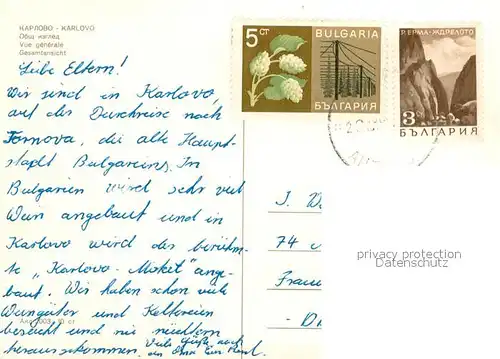 КАРЛОВО - KARLOVO
Общ изглед
Vue générale
Gesamtansicht
Liebe Eltern!
Wir sind in Karlovo,
auf der Durchreise nach
Tornova, die alte Haupt-
stadt Bulgariens. In
Bulgarien wird sehr viel
Wein angebaut und in
Karlovo wird der berühm-
te „Karlovo-Misket" ange-
baut. Wir haben schon viele
Weingüter und Keltereien
besucht und nie nüchtern
herauskommen. Viele Grüße auch
an Oma Euer
5 CT
BULGARIA
БЪЛГАРИЯ
Р. ЕРМА-ЖДРЕЛОТО
3
БЪЛГАРИЯ
J.
74
privacy protection
Datenschutz